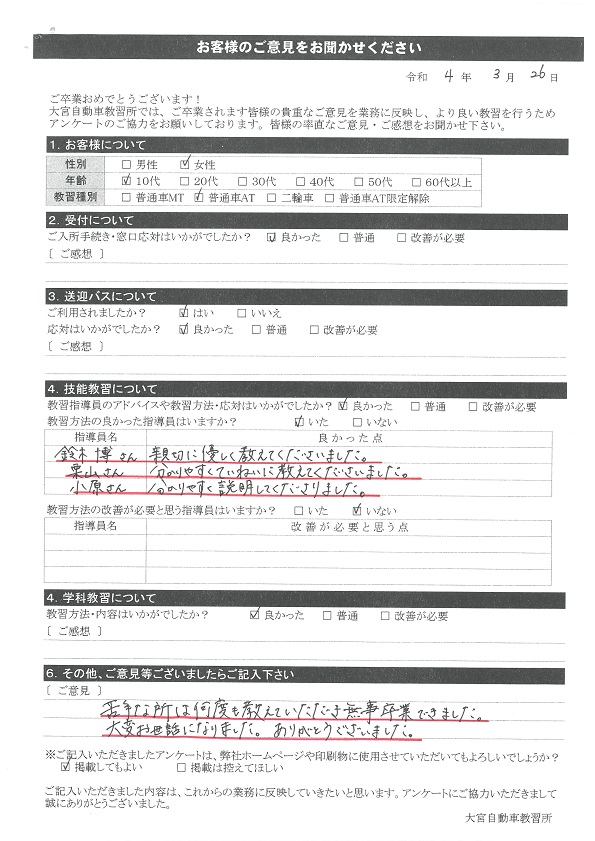 お客様のご意見をお聞かせください
令和 4 年 3 月 26 日
ご卒業おめでとうございます！
大宮自動車教習所では、ご卒業されます皆様の貴重なご意見を業務に反映し、より良い教習を行うため
アンケートのご協力をお願いしております。皆様の率直なご意見・ご感想をお聞かせ下さい。
1. お客様について
性別 □ 男性 ☑ 女性
年齢 ☑ 10代 □ 20代 □ 30代 □ 40代 □ 50代 □ 60代以上
教習種別 □ 普通車MT ☑ 普通車AT □ 二輪車 □ 普通車AT限定解除
2. 受付について
ご入所手続き・窓口応対はいかがでしたか？ ☑ 良かった □ 普通 □ 改善が必要
［ ご感想 ］
3. 送迎バスについて
ご利用されましたか？ ☑ はい □ いいえ
応対はいかがでしたか？ ☑ 良かった □ 普通 □ 改善が必要
［ ご感想 ］
4. 技能教習について
教習指導員のアドバイスや教習方法・応対はいかがでしたか？ ☑ 良かった □ 普通 □ 改善が必要
教習方法の良かった指導員はいますか？ ☑ いた □ いない
指導員名 良かった点
鈴木 博さん 親切に優しく教えてくださいました。
栗山さん 分かりやすくていねいに教えてくださいました。
小原さん 分かりやすく説明してくださりました。
教習方法の改善が必要と思う指導員はいますか？ □ いた ☑ いない
指導員名 改善が必要と思う点
4. 学科教習について
教習方法・内容はいかがでしたか？ ☑ 良かった □ 普通 □ 改善が必要
［ ご感想 ］
6. その他、ご意見等ございましたらご記入下さい
［ ご意見 ］
苦手な所は何度も教えていただき無事卒業できました。
大変お世話になりました。ありがとうございました。
※ご記入いただきましたアンケートは、弊社ホームページや印刷物に使用させていただいてもよろしいでしょうか？
☑ 掲載してもよい □ 掲載は控えてほしい
ご記入いただきました内容は、これからの業務に反映していきたいと思います。アンケートにご協力いただきまして
誠にありがとうございました。
大宮自動車教習所